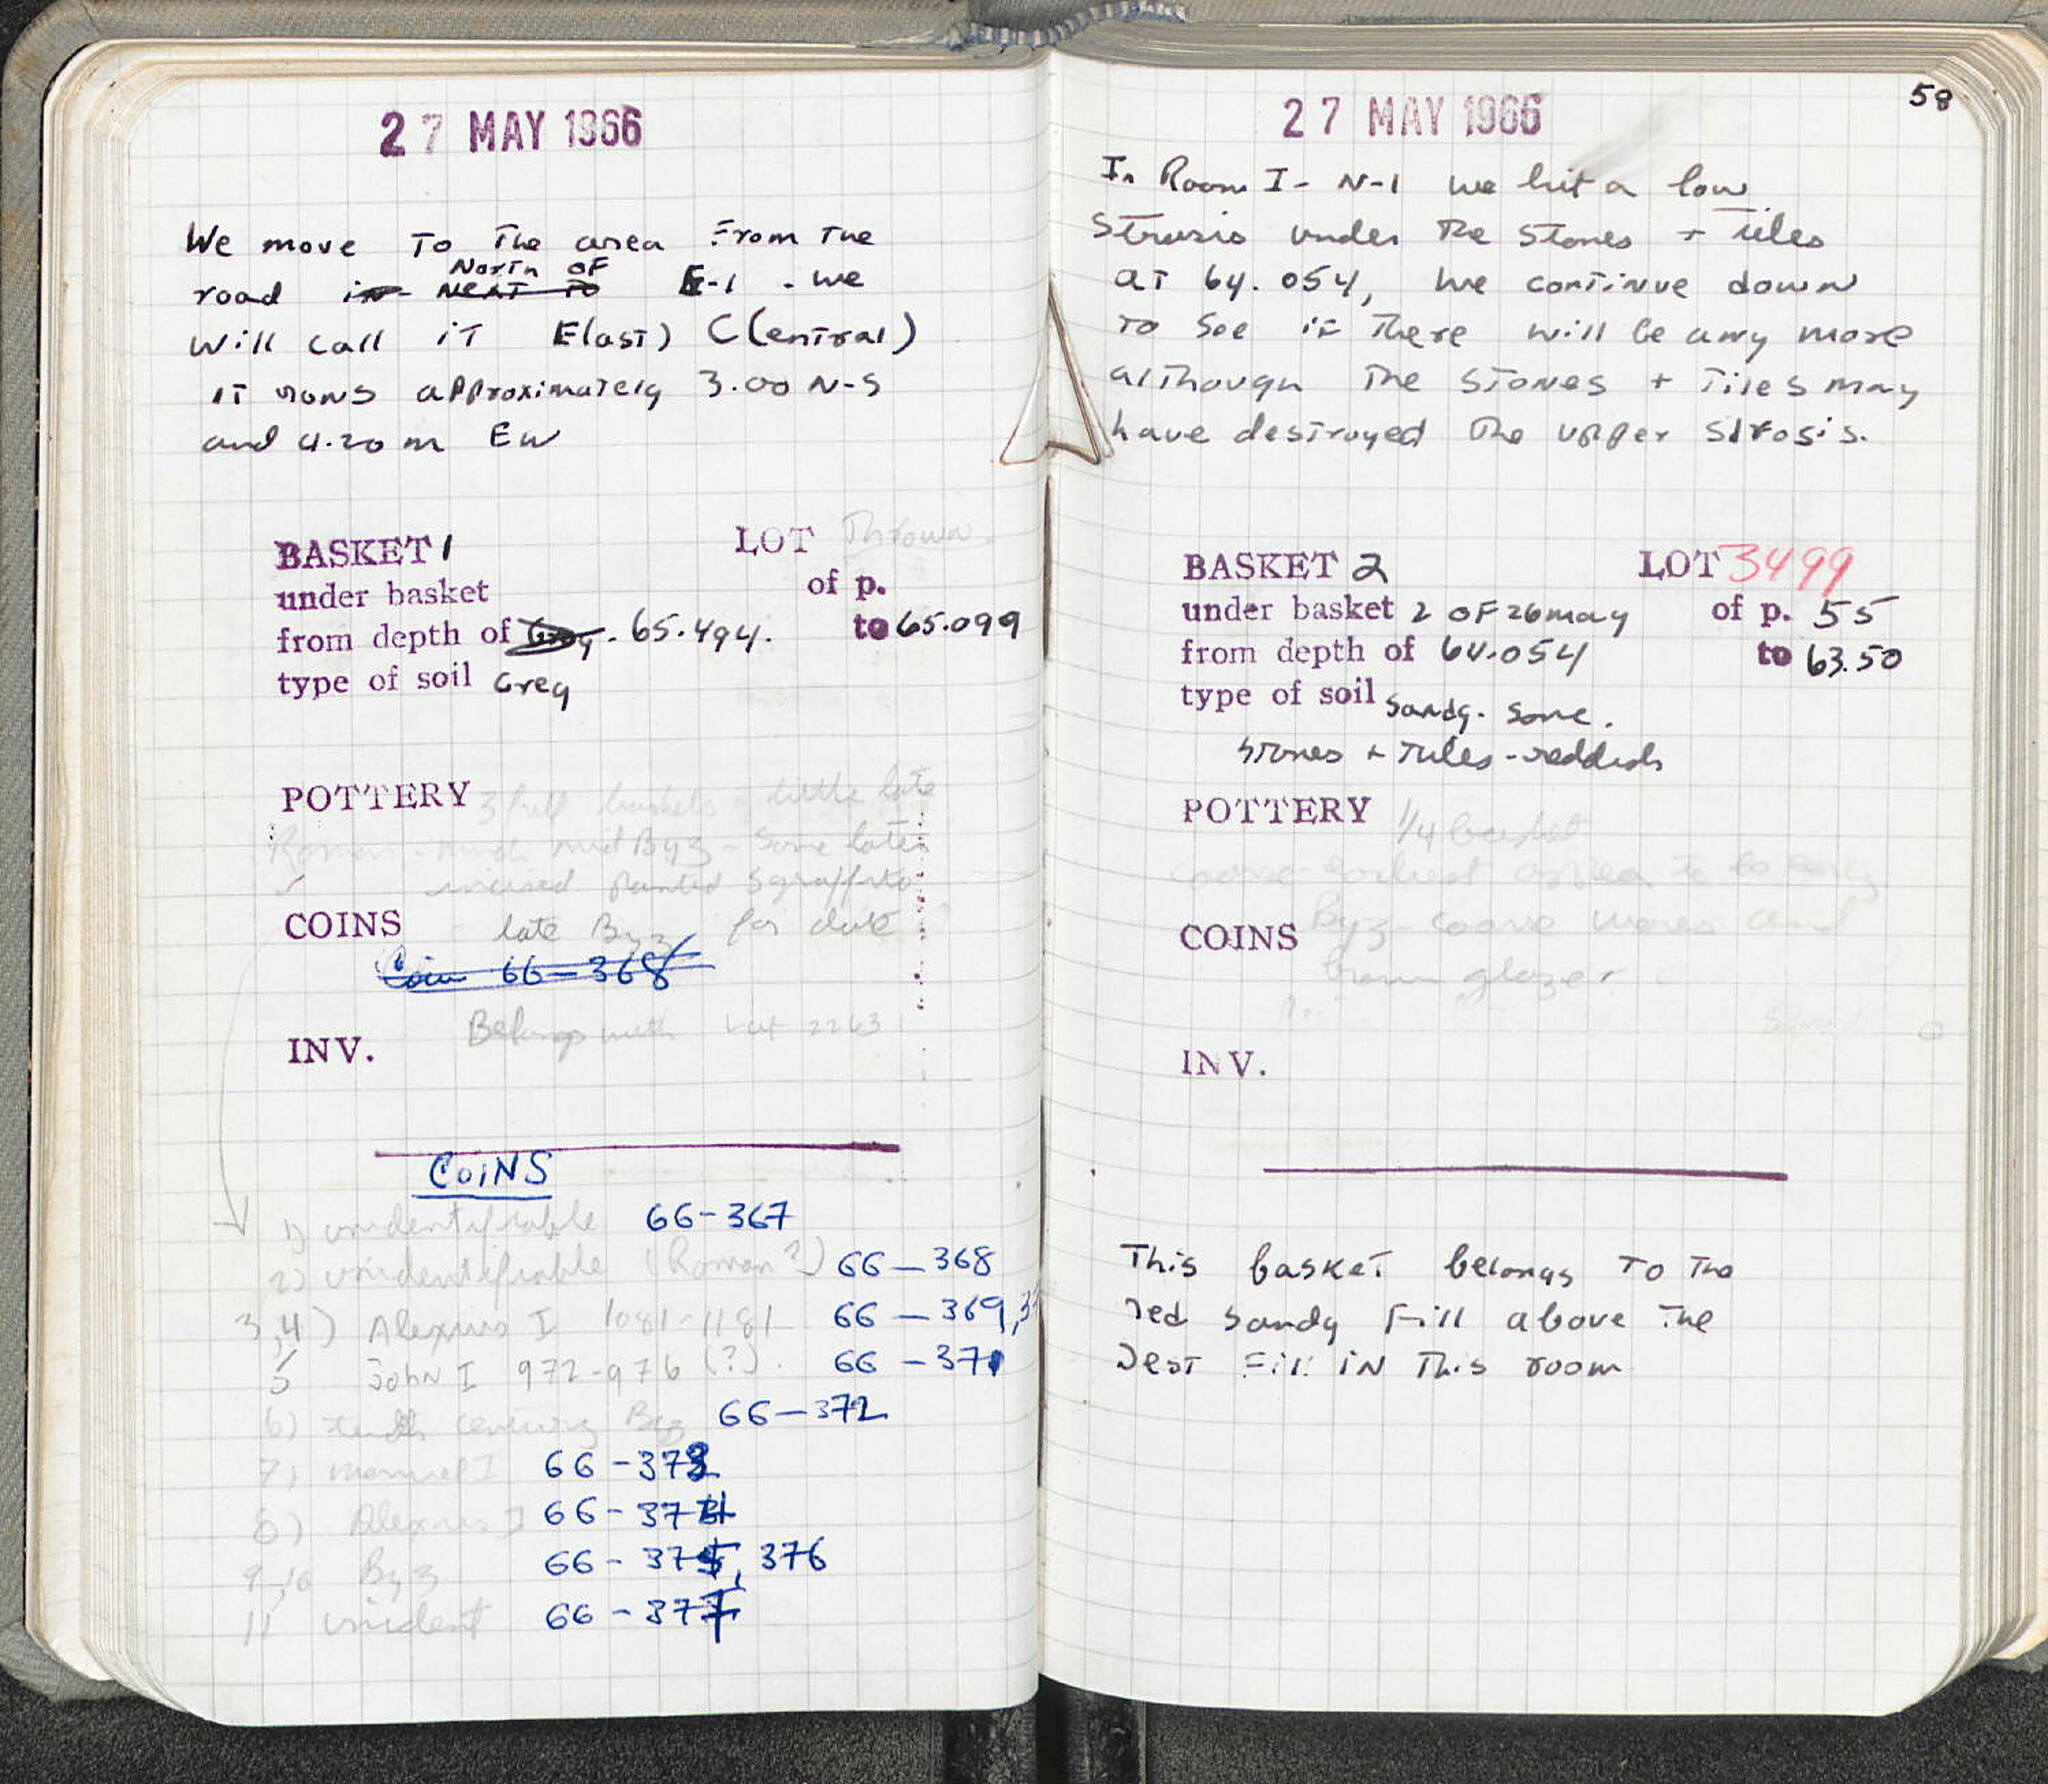 27 MAY 1966
We move To The area From The
road in North OF Next To E-1 - we
will call iT E(ast) C(entral)
iT runs approximately 3.00 N-S
and 4.20 m EW
BASKET 1 LOT Thrown
under basket of p.
from depth of 65.494. to 65.099
type of soil Grey
POTTERY 3 full baskets little late
Roman - much mid Byz - some later
incised painted Sgraffito
COINS late Byz for date
Coin 66-368
Belongs with Lot 2263
INV.
COINS
1) unidentifiable 66-367
2) unidentifiable (Roman?) 66-368
3,4) Alexius I 1081-1181 66-369,3
5 John I 972-976 (?). 66-371
6) tenth century Byz 66-372
7) Manuel I 66-373
8) Alexius I 66-374
9,10 Byz 66-375, 376
11 unident 66-377
27 MAY 1966
58
In Room I- N-1 we hit a low
Strosis under The Stones + Tiles
at 64.054, We continue down
To See if There will be any more
although The Stones + Tiles may
have destroyed The upper Strosis.
BASKET 2 LOT 3499
under basket 2 OF 26 may of p. 55
from depth of 64.054 to 63.50
type of soil Sandy. Some.
Stones + Tiles - reddish
POTTERY 1/4 basket
coarse - earliest to be early
COINS Byz - coarse wares and
brown glazes
INV.
This basket belongs To The
red Sandy Fill above The
Dest Fill in This room